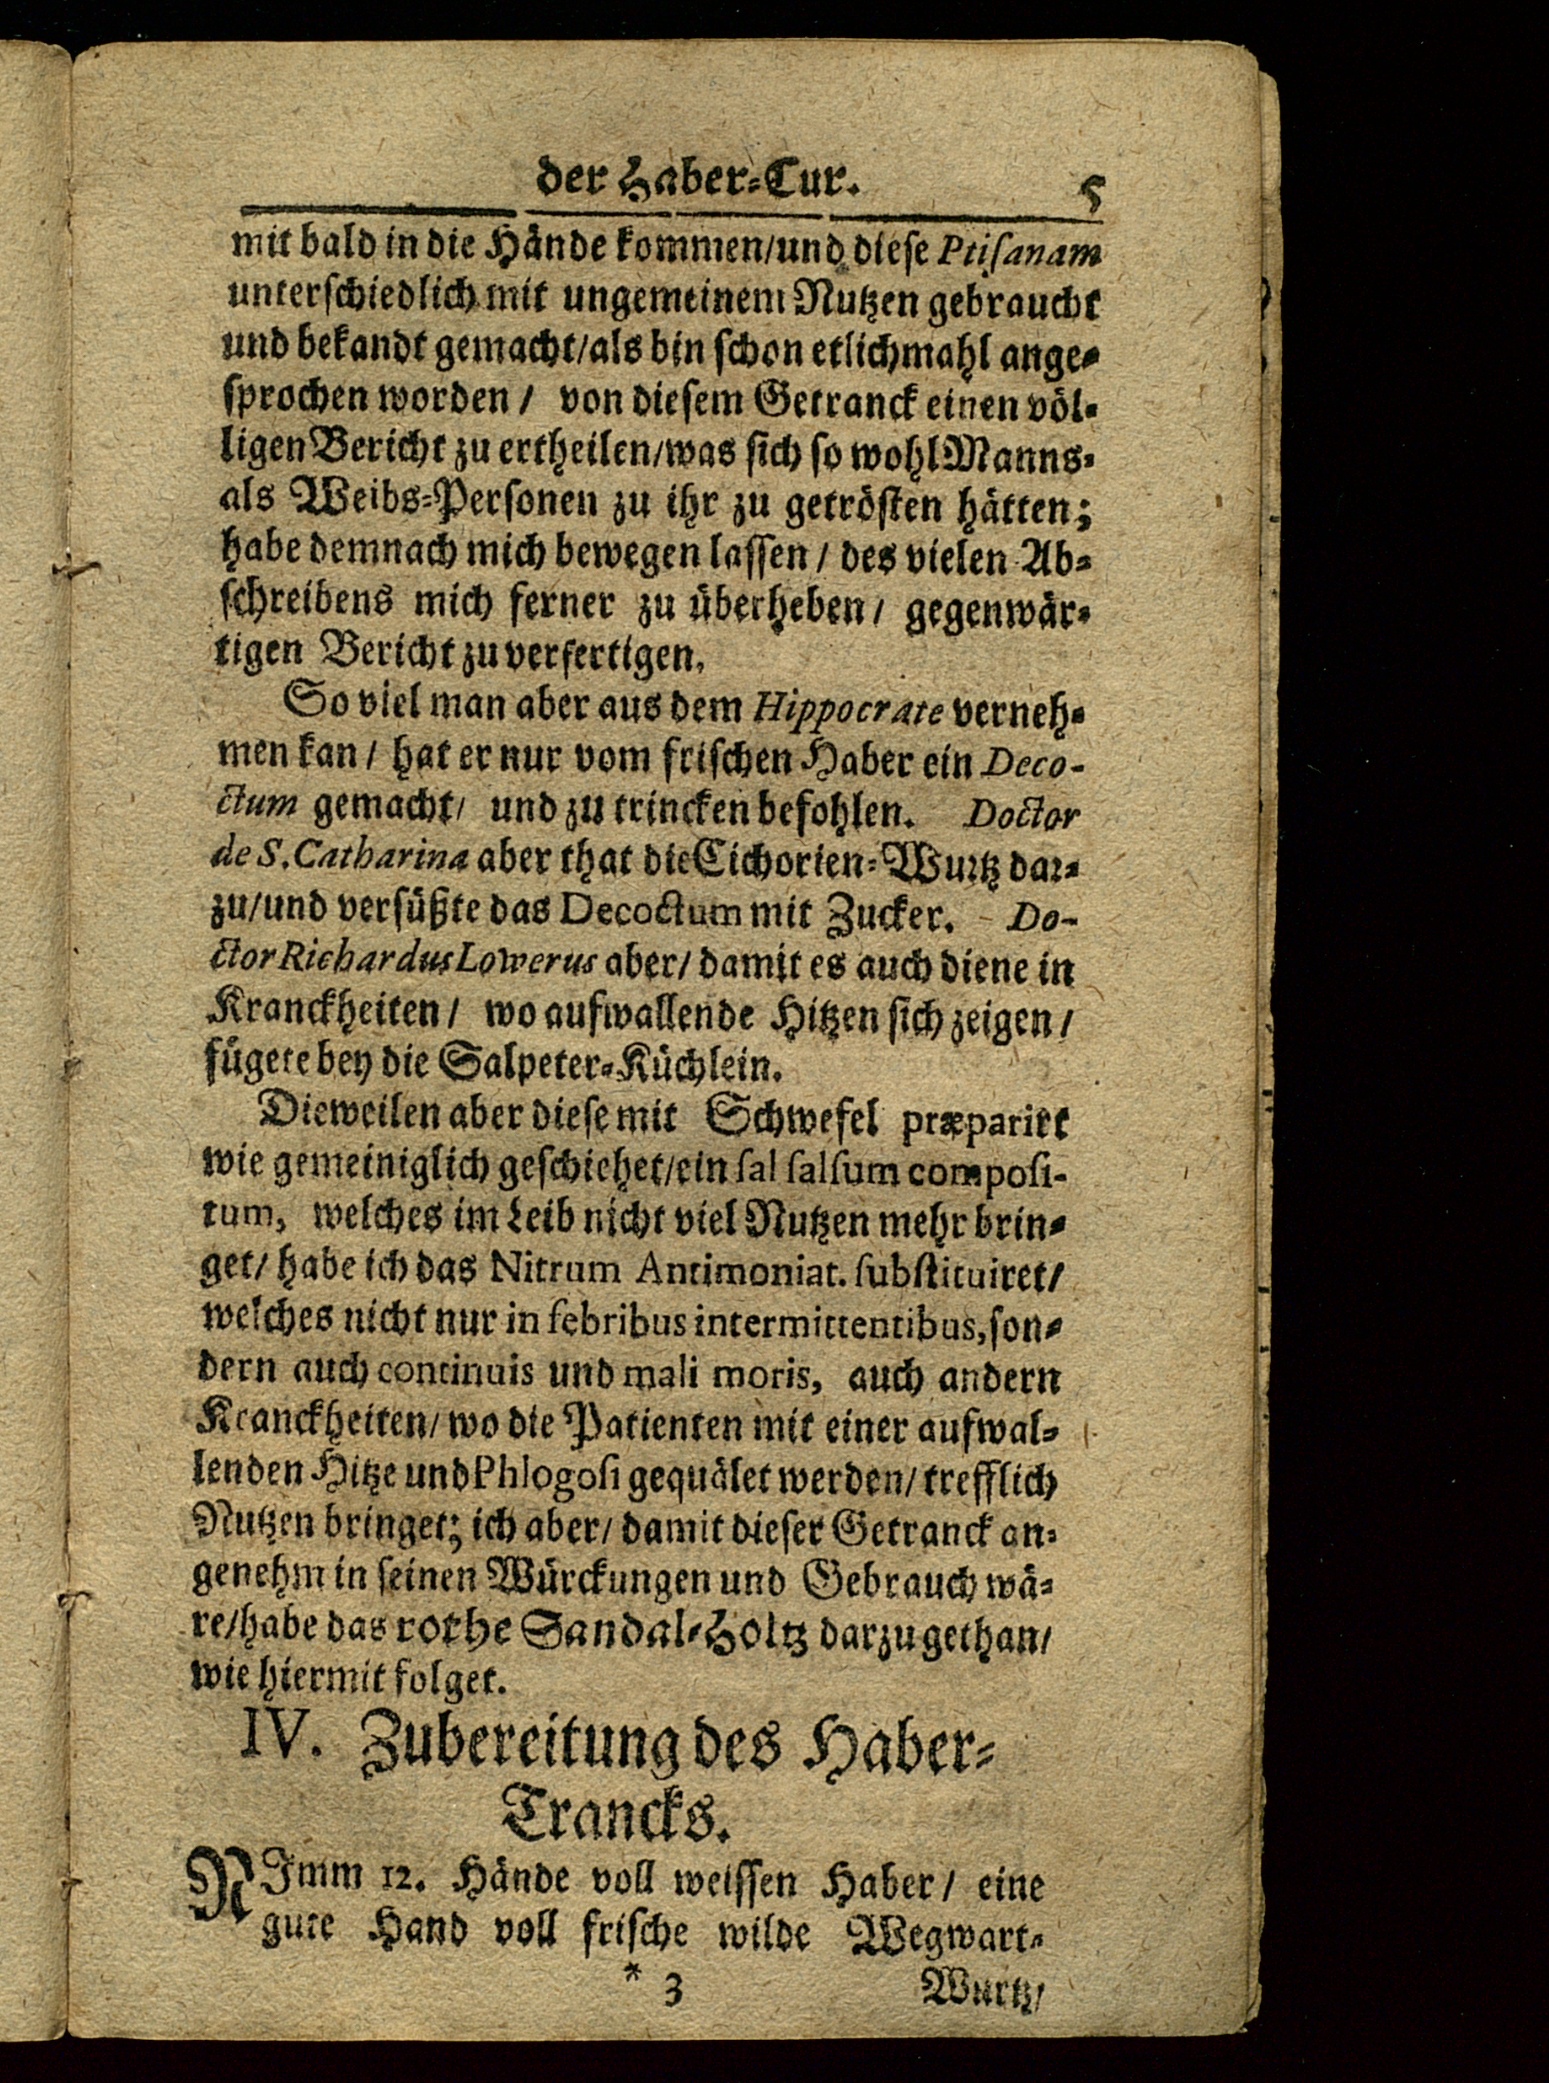 der Haber-Cur. 5
mit bald in die Hände kommen/und diese Ptisanam
unterschiedlich mit ungemeinem Nutzen gebraucht
und bekandt gemacht/als bin schon etlichmahl ange-
sprochen worden / von diesem Getranck einen völ-
ligen Bericht zu ertheilen/was sich so wohl Manns-
als Weibs-Personen zu ihr zu getrösten hätten;
habe demnach mich bewegen lassen / des vielen Ab-
schreibens mich ferner zu überheben / gegenwär-
tigen Bericht zu verfertigen.
So viel man aber aus dem Hippocrate verneh-
men kan / hat er nur vom frischen Haber ein Deco-
ctum gemacht/ und zu trincken befohlen. Doctor
de S. Catharina aber that die Cichorien-Wurtz dar-
zu/und versüßte das Decoctum mit Zucker. Do-
ctor Richardus Lowerus aber/ damit es auch diene in
Kranckheiten / wo aufwallende Hitzen sich zeigen /
fügete bey die Salpeter-Küchlein.
Dieweilen aber diese mit Schwefel præparirt
wie gemeiniglich geschiehet/ein sal salsum composi-
tum, welches im Leib nicht viel Nutzen mehr brin-
get/ habe ich das Nitrum Antimoniat. substituiret/
welches nicht nur in febribus intermittentibus, son-
dern auch continuis und mali moris, auch andern
Kranckheiten/ wo die Patienten mit einer aufwal-
lenden Hitze und Phlogosi gequälet werden/ trefflich
Nutzen bringet; ich aber/ damit dieser Getranck an-
genehm in seinen Würckungen und Gebrauch wä-
re/habe das rothe Sandal-Holtz darzu gethan/
wie hiermit folget.
IV. Zubereitung des Haber-
Trancks.
NImm 12. Hände voll weissen Haber / eine
gute Hand voll frische wilde Wegwart-
* 3 Wurtz/